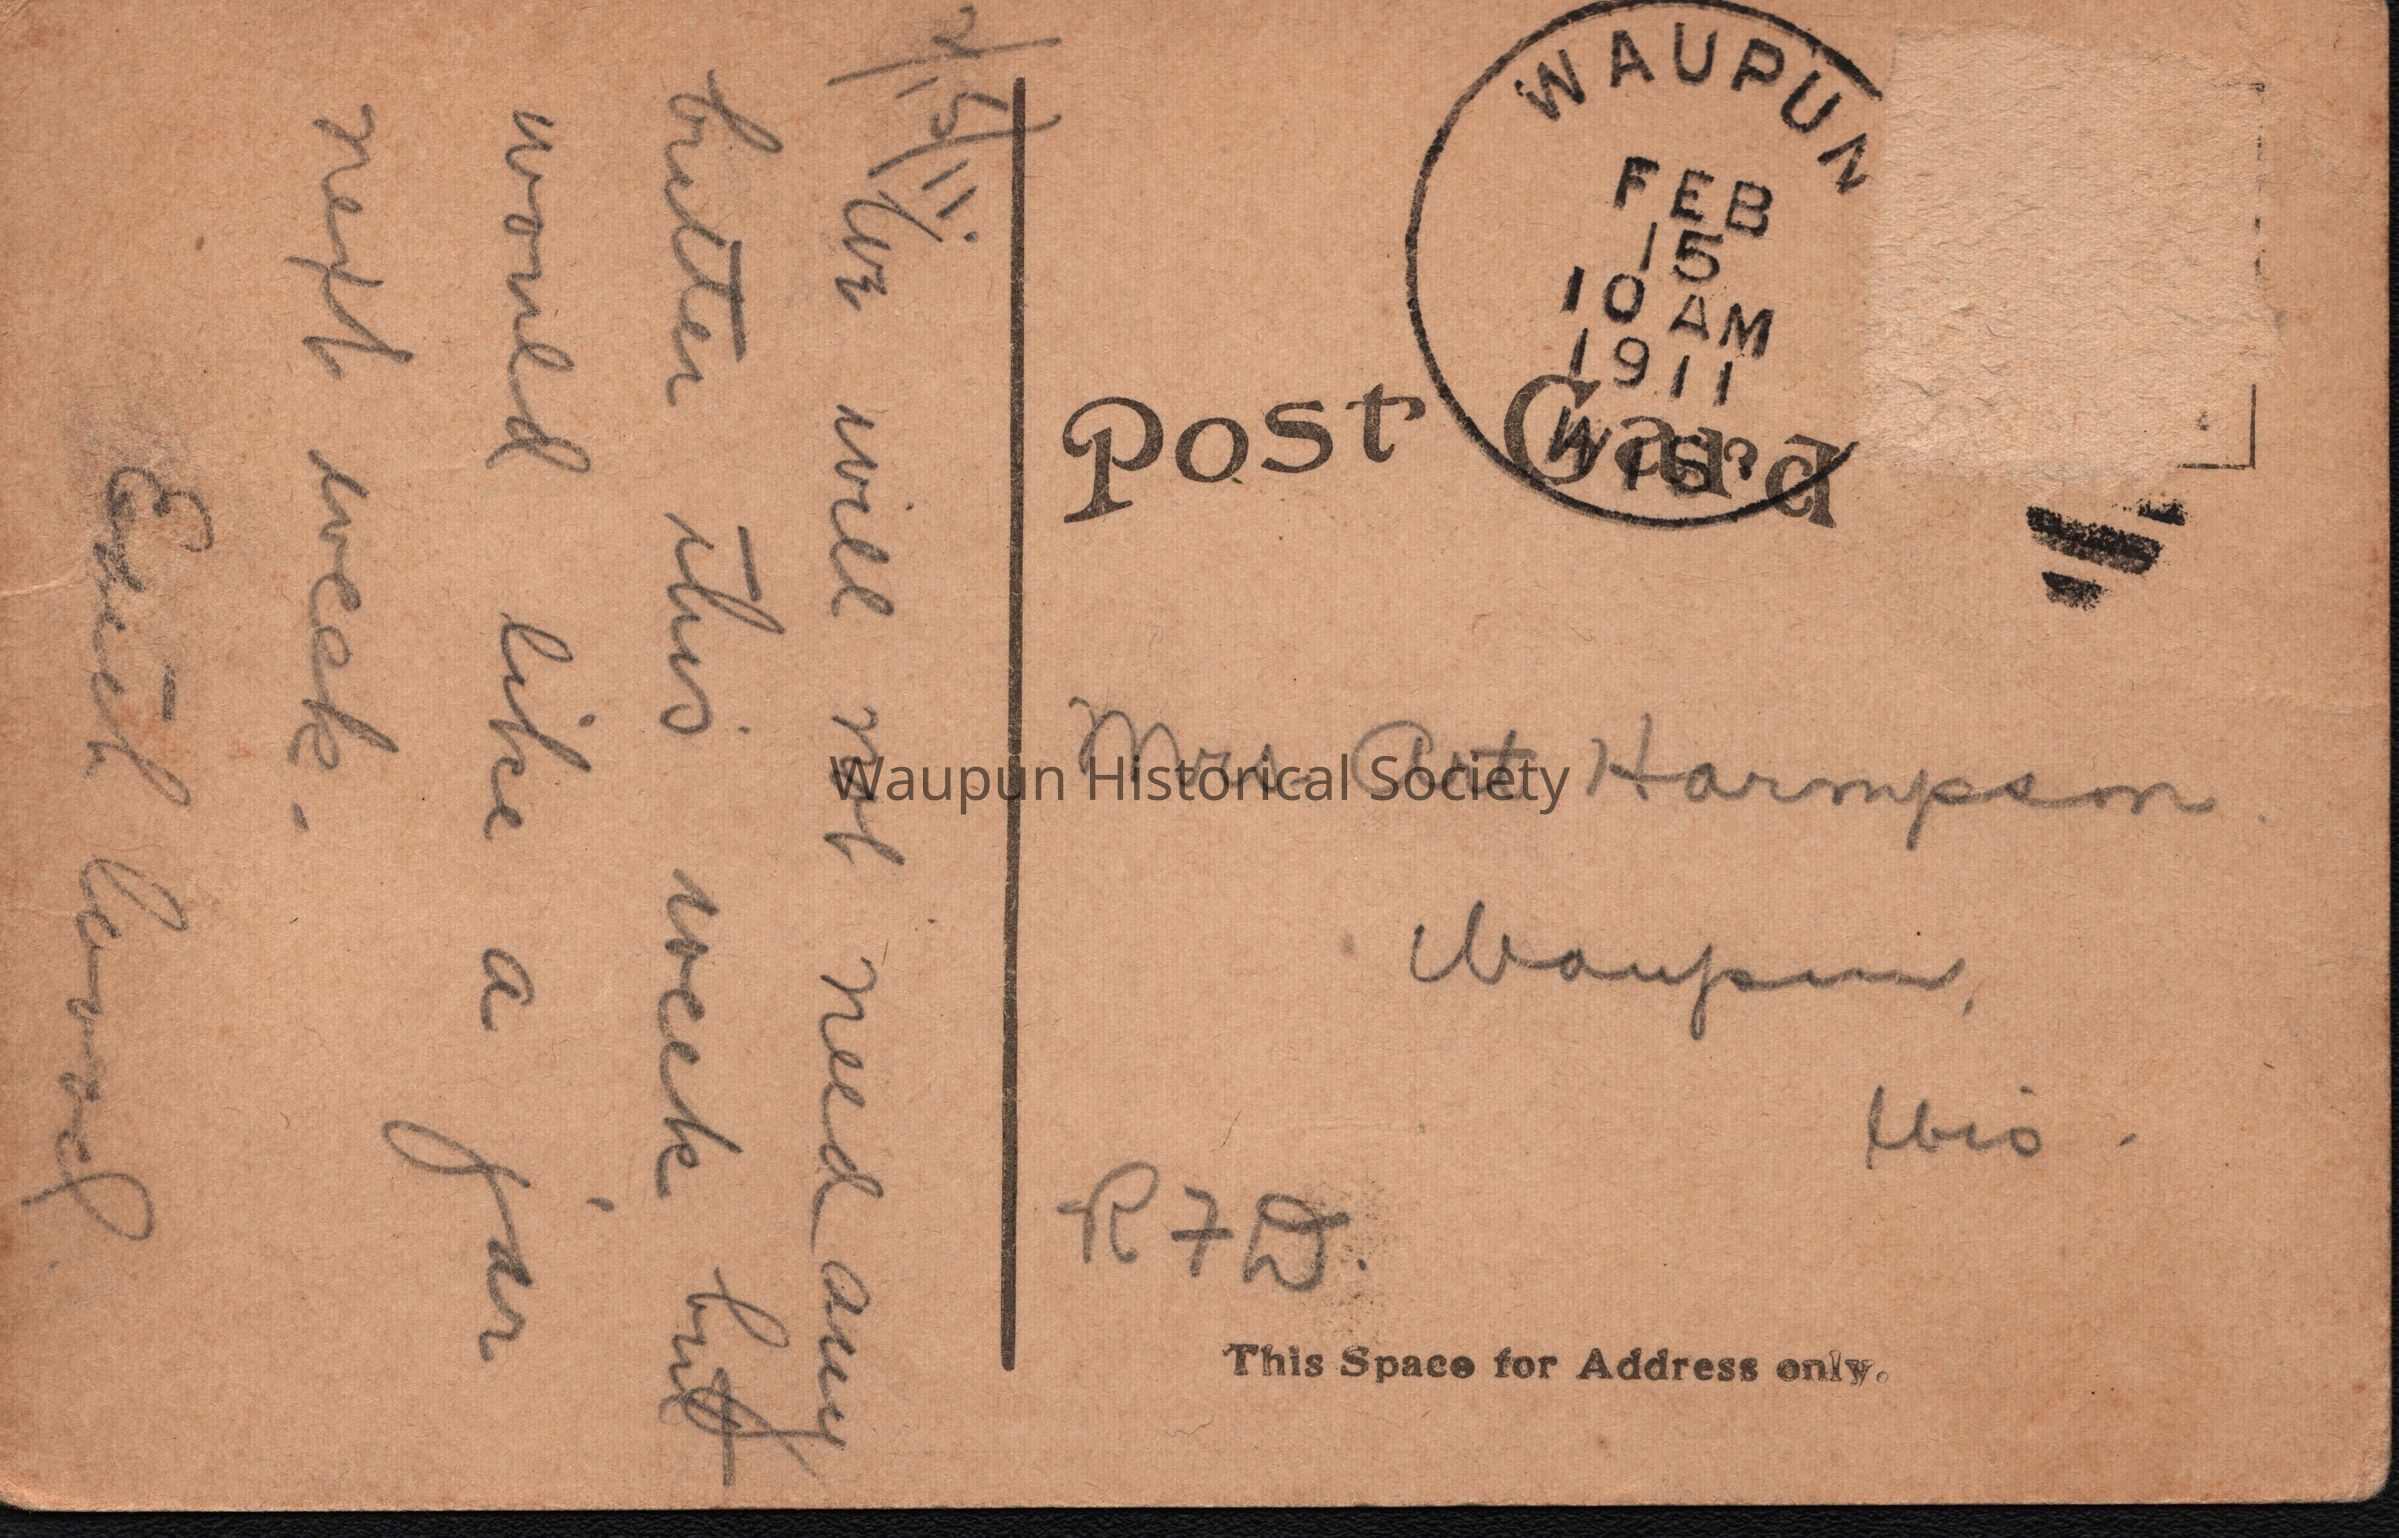 WAUPUN
FEB
15
10 AM
1911
WIS.
Post Card
Mrs. Art Harmpson.
Waupun,
Wis.
R F D.
This Space for Address only.
2/15/11.
We will not need any
butter this week but
would like a jar
next week.
Edith
Waupun Historical Society